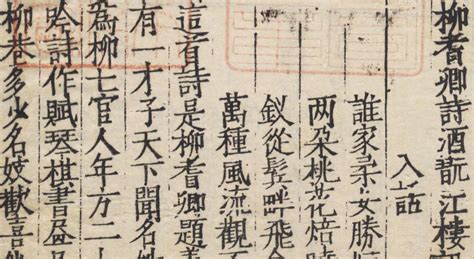 柳耆卿詩酒翫江樓
入話
誰家柔女勝
两朵桃花焙
釵從鬢畔飛金
萬種風流觀不
這首詩是柳耆卿題
有一才子天下聞名姓
為柳七官人年方二十
吟詩作賦琴棋書畫品
柳巷多少名妓歡喜他